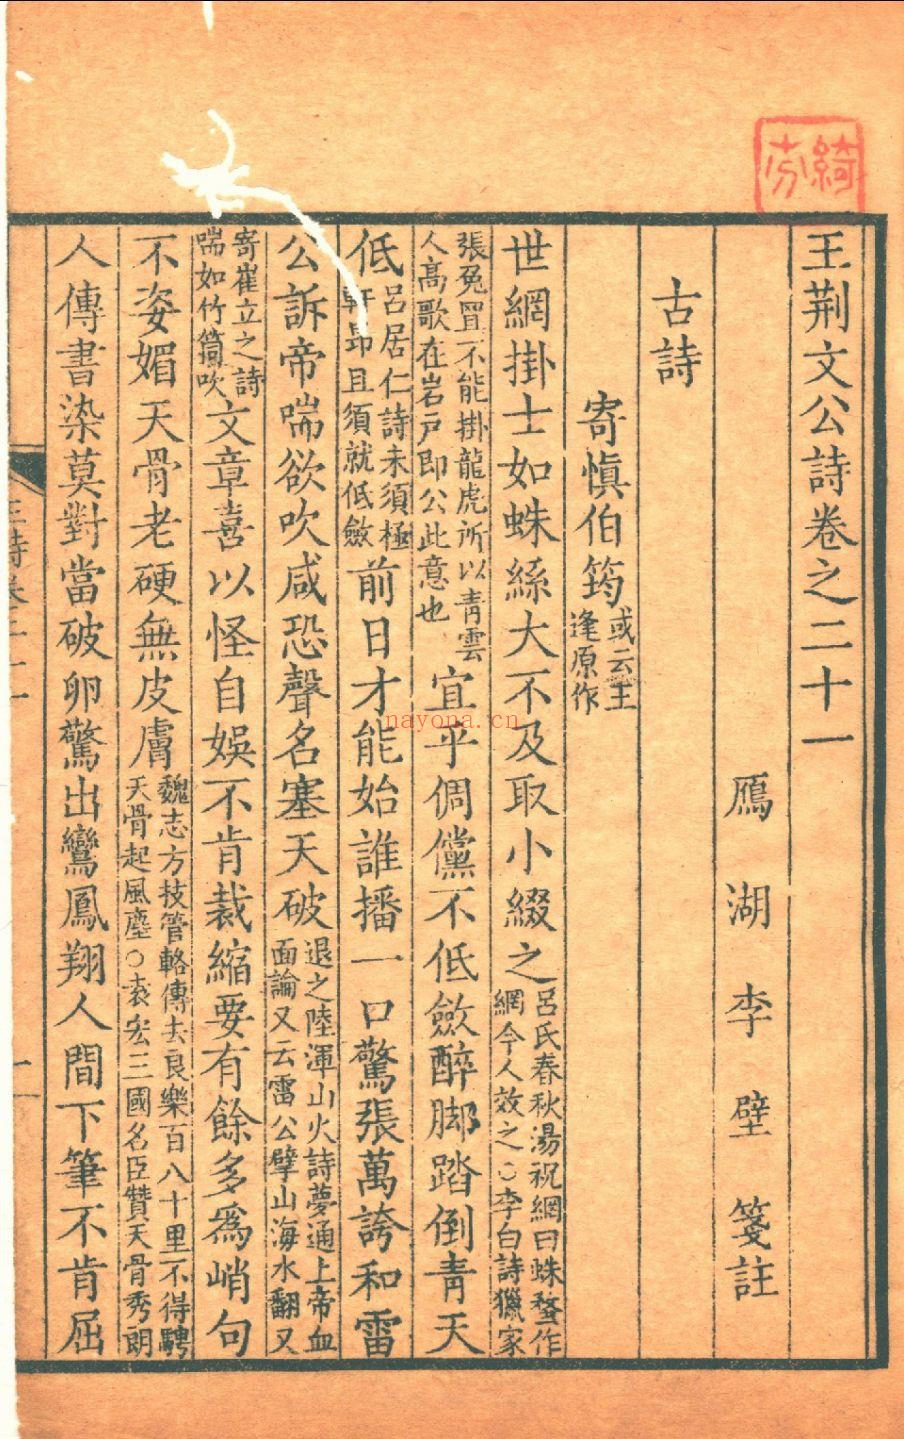 綺
王荆文公詩卷之二十一
鴈湖李壁箋註
古詩
寄慎伯筠或云王逢原作
世網掛士如蛛絲大不及取小綴之呂氏春秋湯祝網曰蛛蝥作網今人效之○李白詩獵家
張兔罝不能掛龍虎所以青雲人高歌在岩戶即公此意也宜乎倜儻不低斂醉脚踏倒青天
低呂居仁詩未須極軒昂且須就低斂前日才能始誰播一口驚張萬誇和雷
公訴帝喘欲吹咸恐聲名塞天破退之陸渾山火詩夢通上帝血面論又云雷公擘山海水翻又
寄崔立之詩喘如竹筒吹文章喜以怪自娛不肯裁縮要有餘多爲峭句
不姿媚天骨老硬無皮膚魏志方技管輅傳去良樂百八十里不得騁天骨起風塵○袁宏三國名臣贊天骨秀朗
人傳書染莫對當破卵驚出鸞鳳翔人間下筆不肯屈
王詩卷二十一
一
nayona.cn